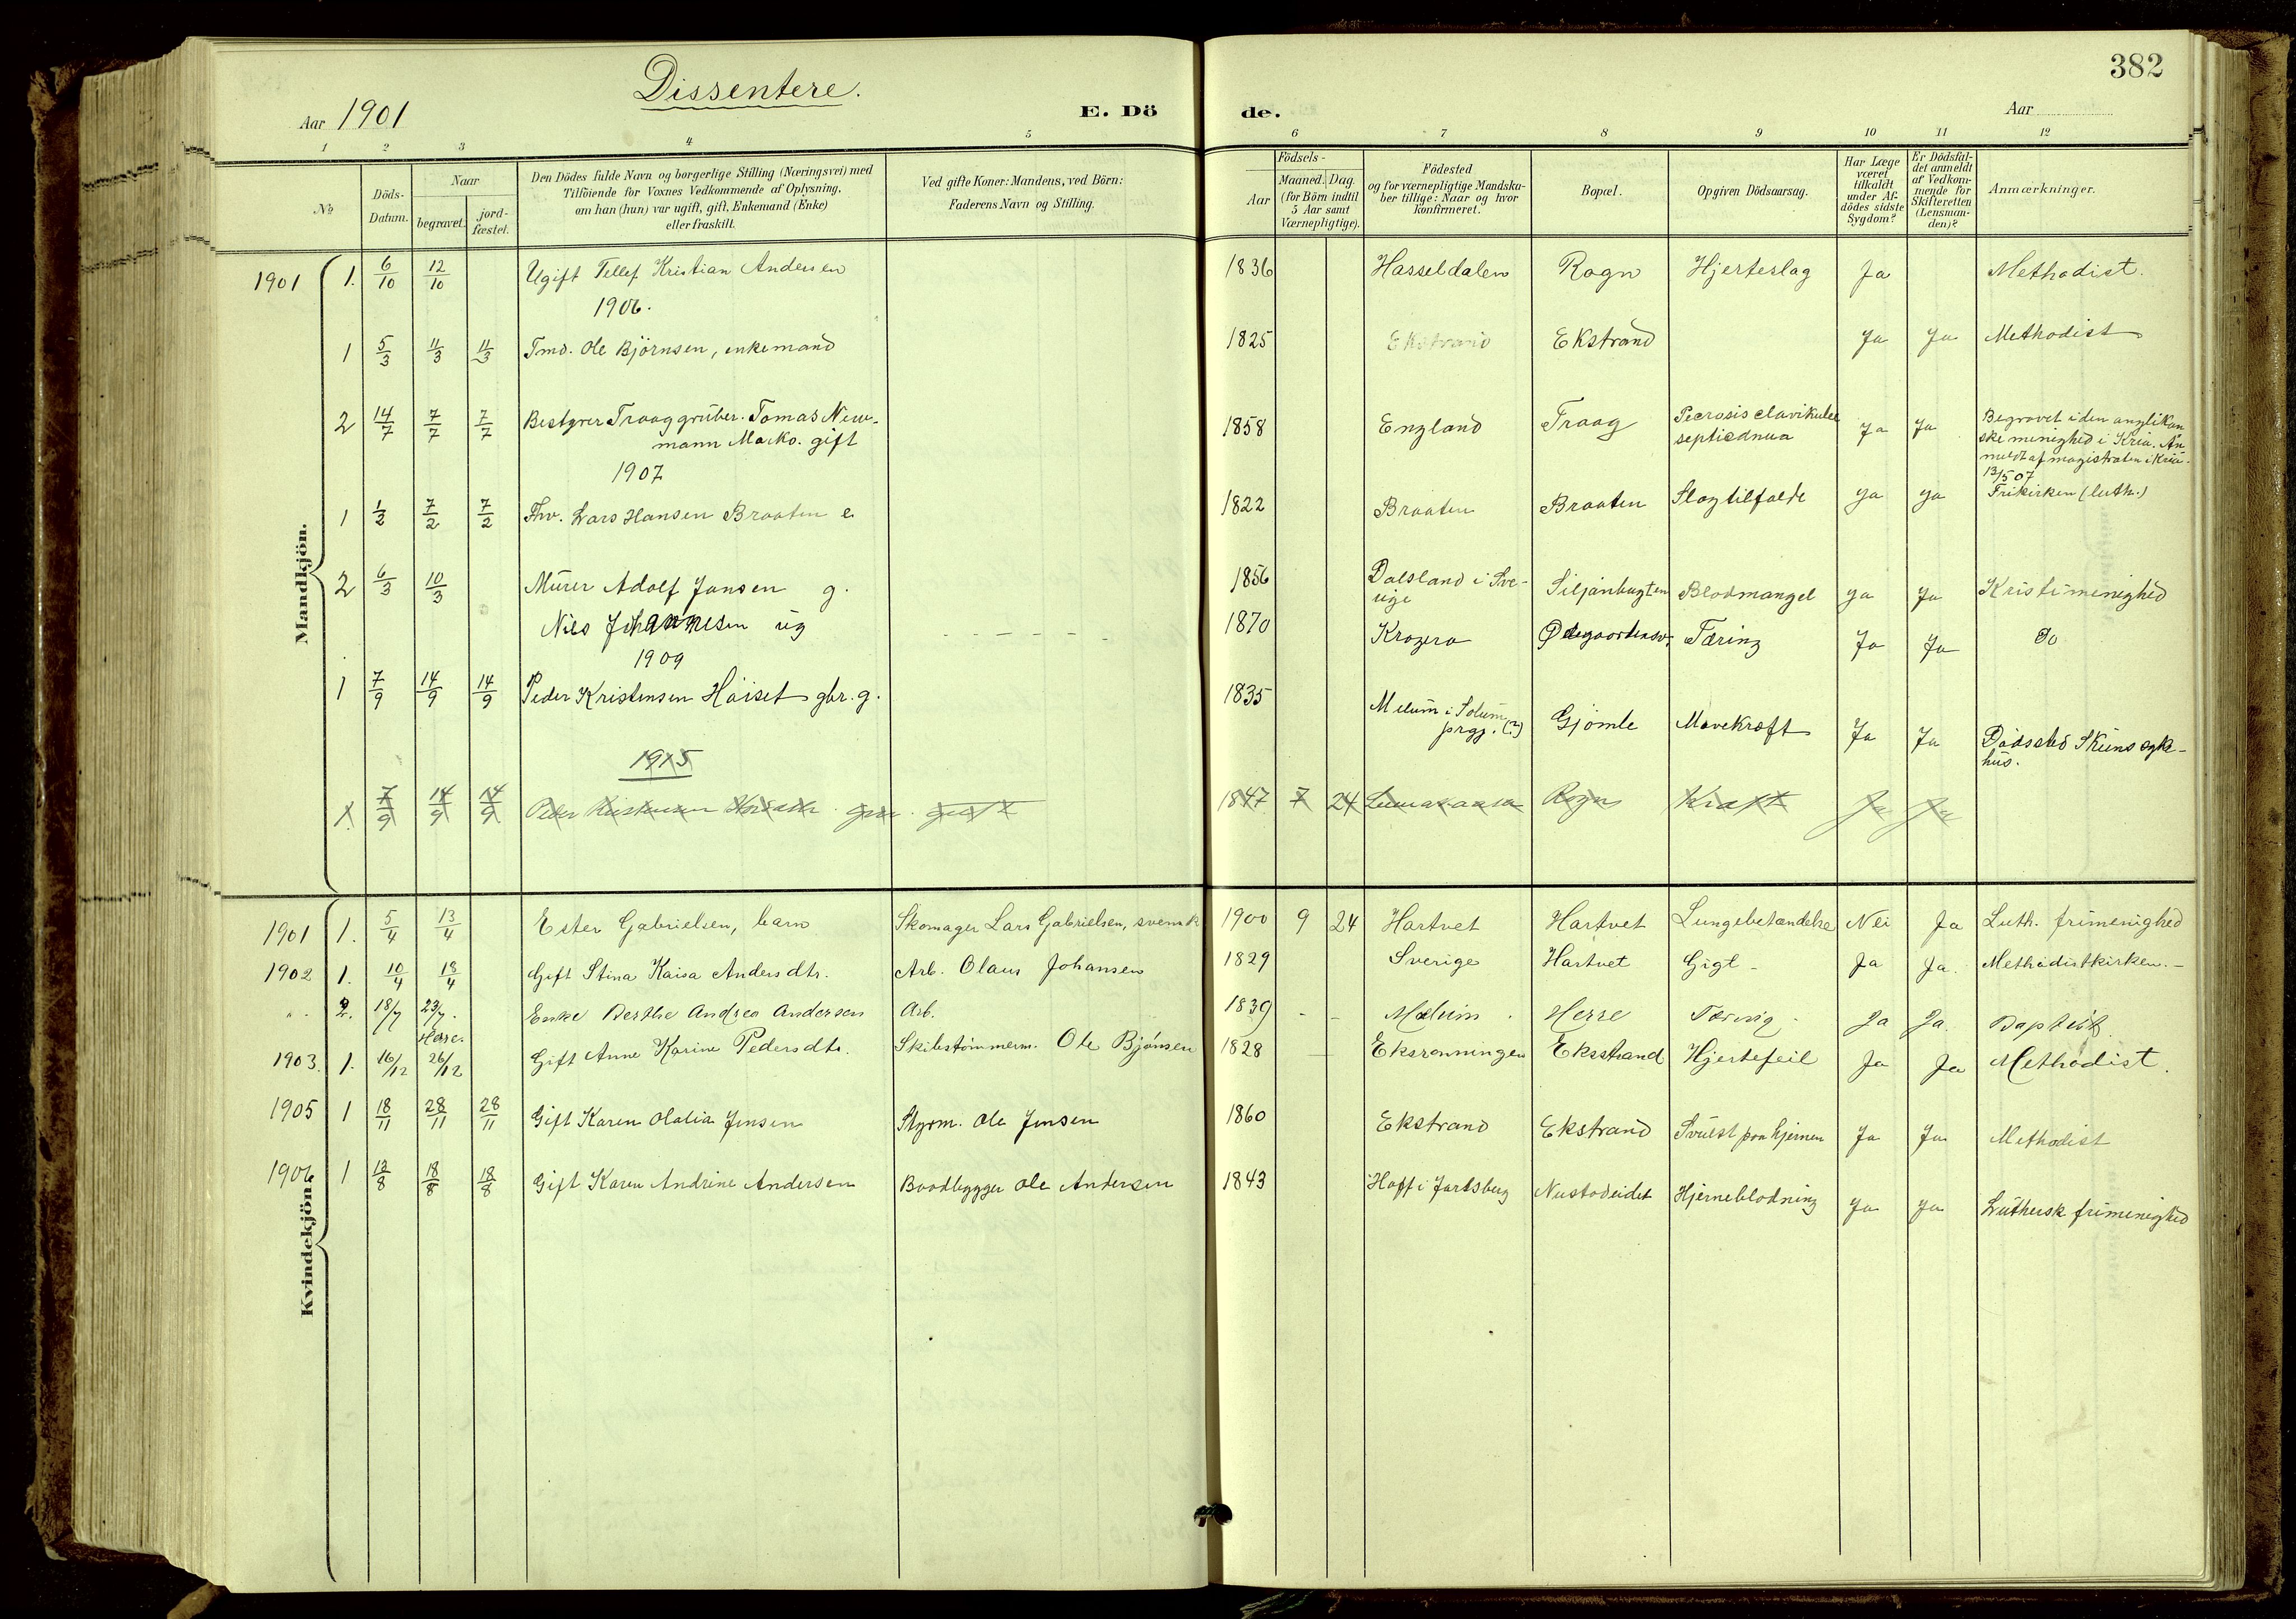 Dissentere.
382
Aar 1901
E. Dö de.
Aar
1 2 3 4 5 6 7 8 9 10 11 12
No
Döds-Datum.
Naar begravet. jordfæstet.
Den Dödes fulde Navn og borgerlige Stilling (Næringsvei) med
Tilföiende for Voxnes Vedkommende af Oplysning,
om han (hun) var ugift, gift, Enkemand (Enke)
eller fraskilt.
Ved gifte Koner: Mandens, ved Börn:
Faderens Navn og Stilling.
Födsels-
Aar Maaned. Dag.
(for Börn indtil
5 Aar samt
Værnepligtige).
Födested
og for værnepligtige Mandska-
ber tillige: Naar og hvor
konfirmeret.
Bopæl.
Opgiven Dödsaarsag.
Har Læge
været
tilkaldt
under Af-
dödes sidste
Sygdom?
Er Dödsfal-
det anmeldt
af Vedkom-
mende for
Skifteretten
(Lensman-
den)?
Anmærkninger.
Mandkjön.
1901 1. 6/10 12/10 Ugift Tellef Kristian Andersen 1836 Hasseldalen Rogn Hjerteslag Ja Methodist.
1906.
1 5/3 11/3 11/3 Tmd. Ole Björnsen, enkemand 1825 Ekstrand Ekstrand Ja Ja Methodist
2 14/7 7/7 7/7 Bestyrer Traag gruber. Tomas New-
mann gift 1858 England Traag clavikulee
Ja Ja Begravet i den anglikan
ske menighed i Kria. An
meldt af magistraten i Kria.
13/5 07
1907
1 1/2 7/2 7/2 Fhv. Lars Hansen Braaten e. 1822 Braaten Braaten Slagtilfælde Ja Ja Frikirken (luth.)
2 6/3 10/3 Murer Adolf Jansen g. 1856 Dalsland i Sve-
rige Siljanbugten Blodmangel Ja Ja Kristi menighed
Nils Johannesen ug - - - - - - 1870 Kragerø Tæring Ja Ja Do
1909
1 7/9 14/9 14/9 Peder Kristensen Höiset gbr. g. 1835 Melum i Solum
prgj. (?) Gjömle Mavekræft Ja Ja Dødssted Skiens syke-
hus.
1915
1. 7/9 14/9 14/9 Peder Kristensen gbr. gift 1847 7 24 Rogn Kræft Ja Ja
Kvindekjön.
1901 1. 5/4 13/4 Ester Gabrielsen, barn Skomager Lars Gabrielsen, svensk 1900 9 24 Hartvet Hartvet Lungebetændelse Nei Ja Luth. frimenighed
1902 1. 10/4 18/4 Gift Stina Kaisa Andersdtr. Arb. Olaus Johansen 1829 Sverige Hartvet Gigt - Ja Ja. Methodistkirken. -
" . 2. 18/7 23/7. Enke Berthe Andrea Andersen Arb. 1839 - - Mælum . Herre Tæring - Ja Ja. Baptist.
Herre.
1903. 1. 16/12 26/12 Gift Anne Karine Pedersdtr. Skibstömmerm. Ole Bjönsen 1828 Eksrønningen Eksstrand Hjertefeil Ja Ja Methodist.
1905 1 18/11 28/11 28/11 Gift Karen Olalia Jensen Styrm. Ole Jensen 1860 Ekstrand Ekstrand Svulst paa hjernen Ja Ja Methodist
1906 1 12/8 18/8 18/8 Gift Karen Andrine Andersen Baadbygger Ole Andersen 1843 Hoff i Jarlsberg Nustadeidet Hjerneblødning Ja Ja Luthersk frimenighed